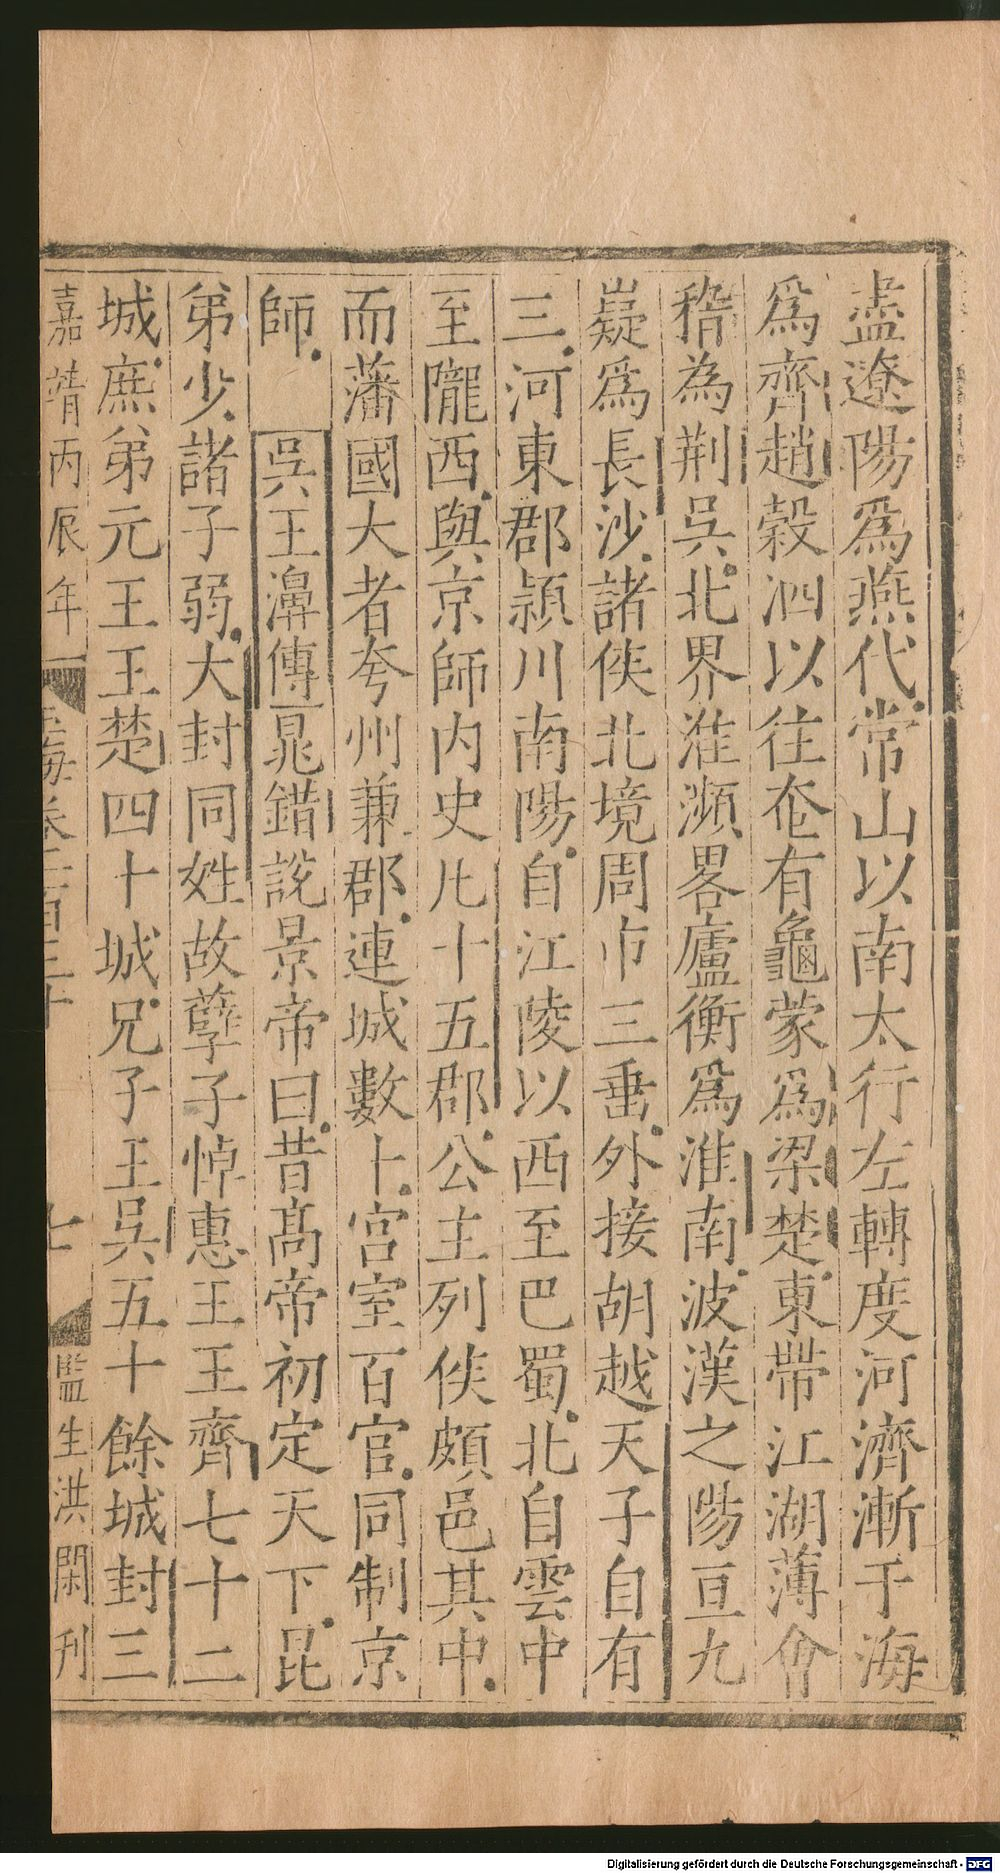 盡遼陽爲燕代常山以南太行左轉度河濟漸于海
爲齊趙穀泗以往奄有龜蒙爲梁楚東帶江湖薄會
稽為荆吳北界淮瀕畧廬衡爲淮南波漢之陽亘九
嶷爲長沙諸侯北境周帀三垂外接胡越天子自有
三河東郡潁川南陽自江陵以西至巴蜀北自雲中
至隴西與京師内史凡十五郡公主列侯頗邑其中
而藩國大者夸州兼郡連城數十宮室百官同制京
師 吳王濞傳鼂錯說景帝曰昔髙帝初定天下昆
弟少諸子弱大封同姓故孽子悼惠王王齊七十二
城庶弟元王王楚四十城兄子王吳五十餘城封三
嘉靖丙辰年 玉海卷一百三十 七 監生洪閑刋
Digitalisierung gefördert durch die Deutsche Forschungsgemeinschaft - DFG